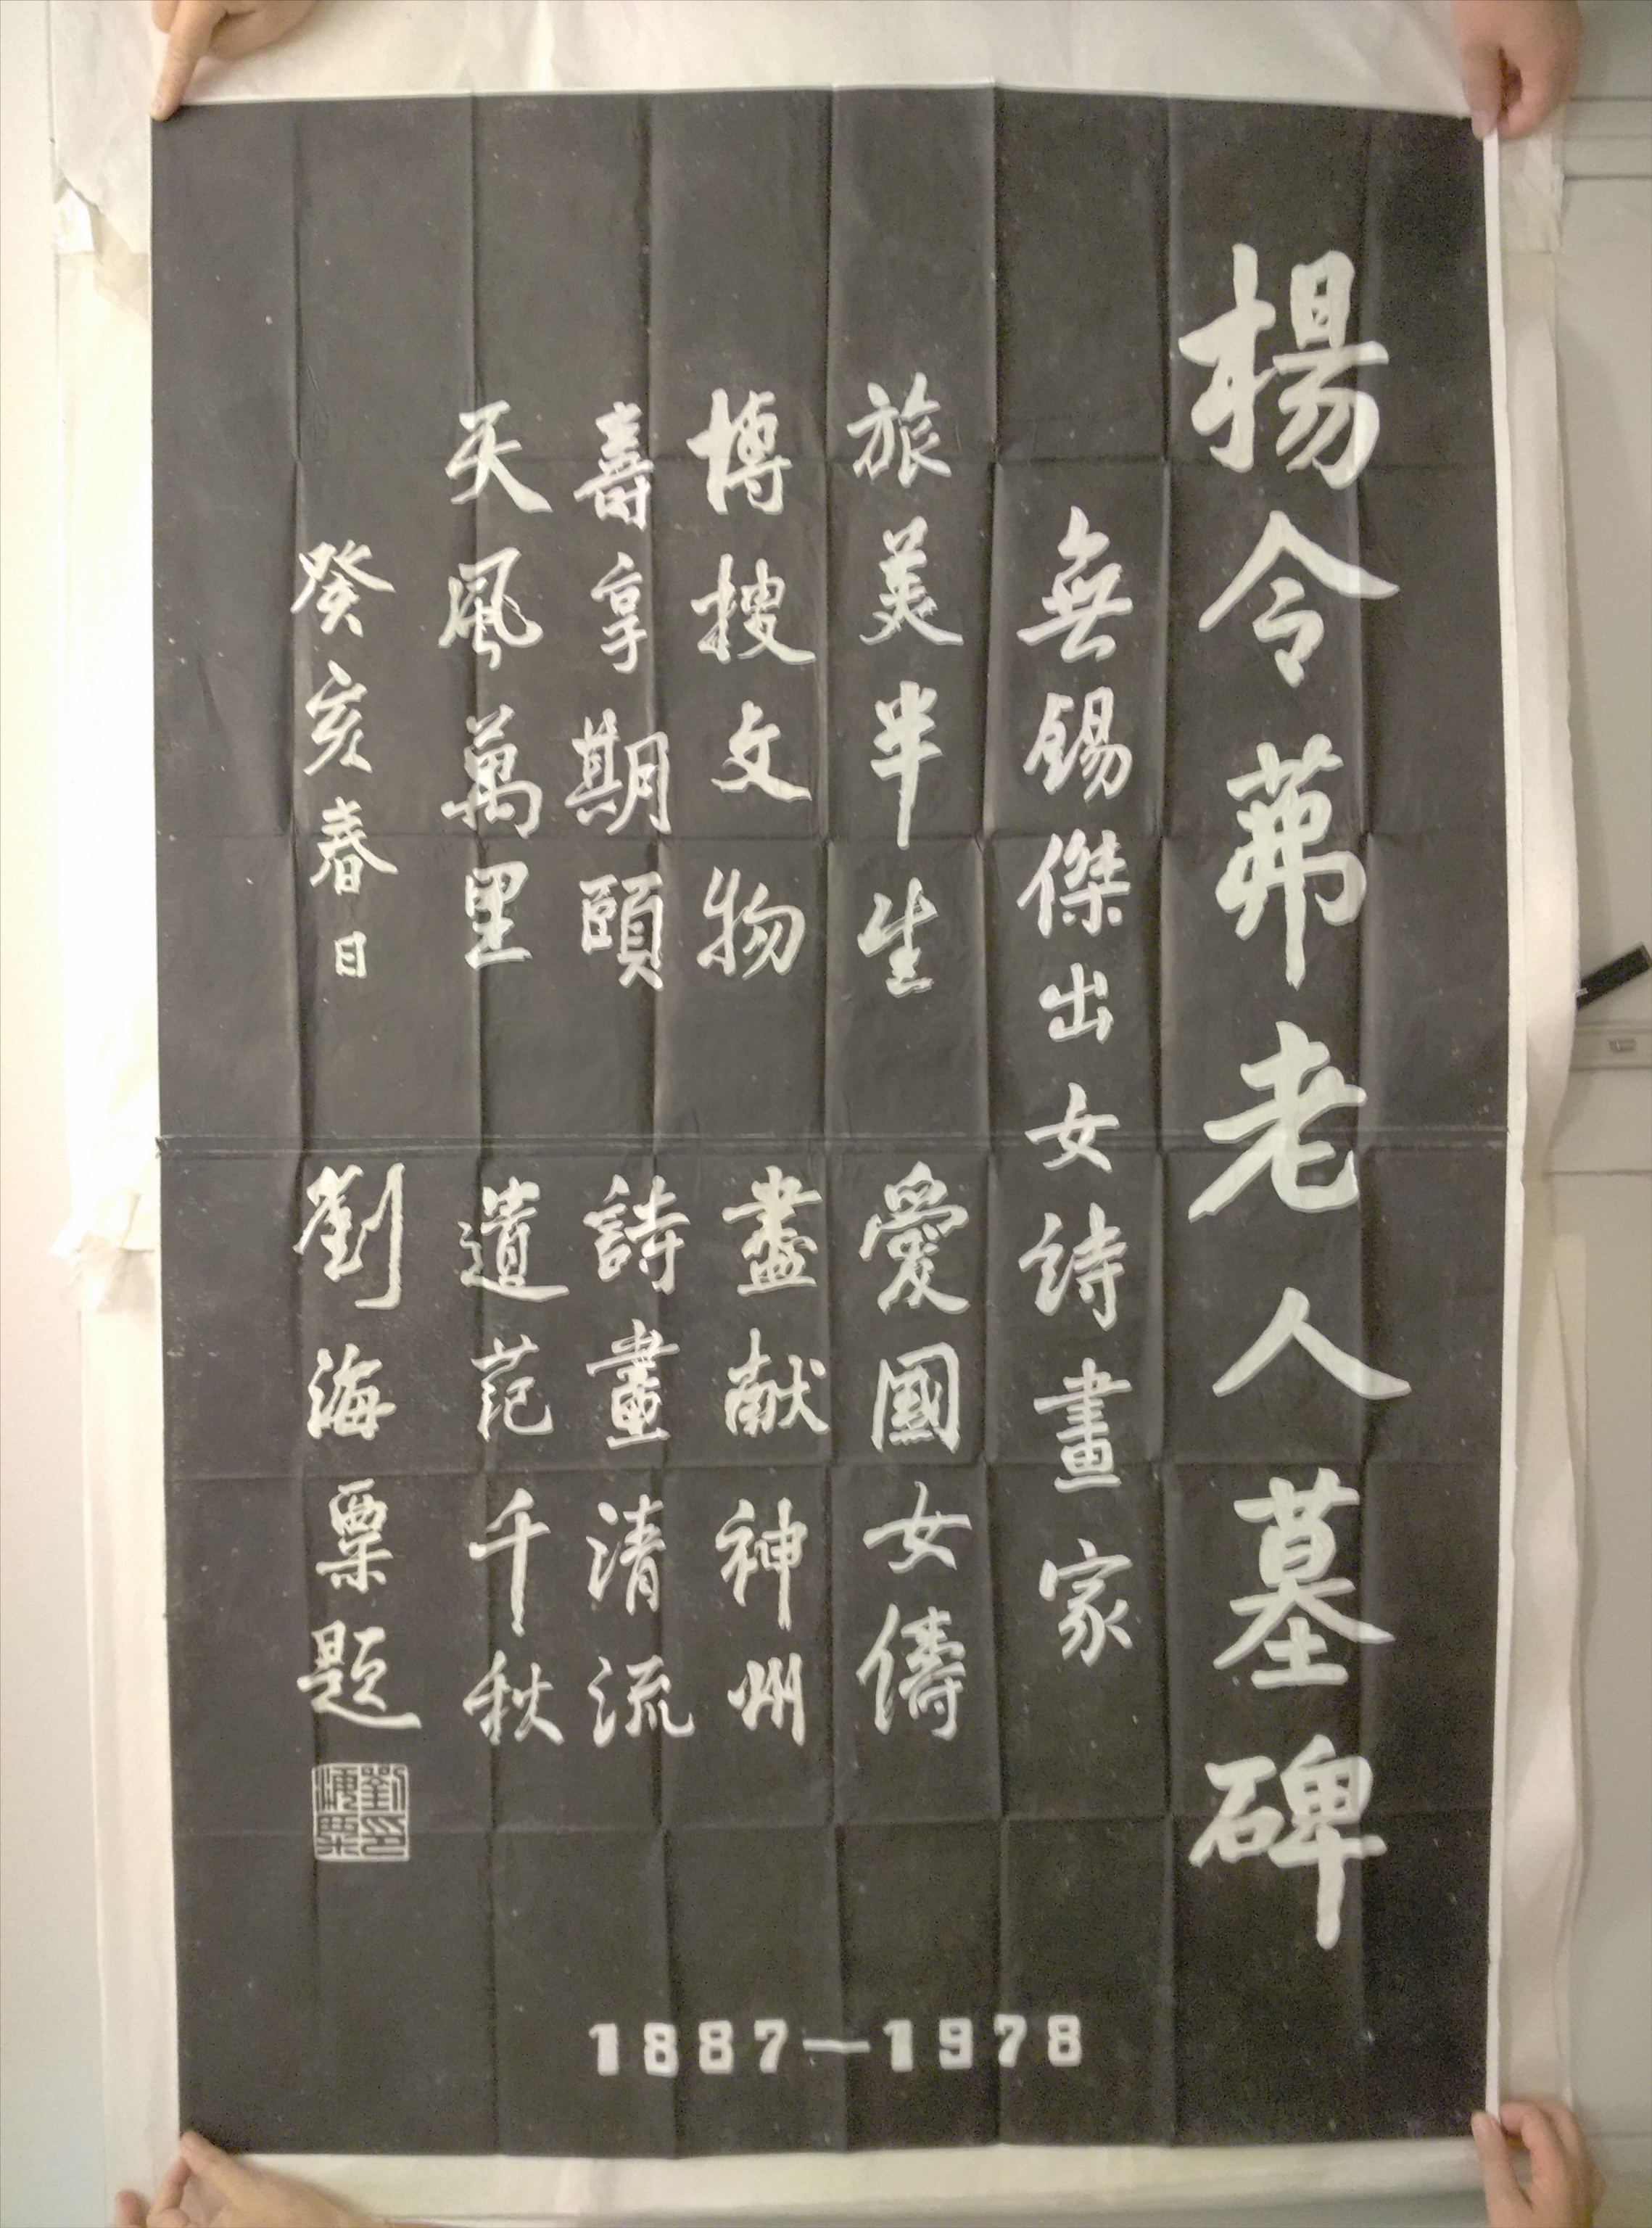 楊令茀老人墓碑
無錫傑出女詩畫家
旅美半生　愛國女儔
博搜文物　盡献神州
壽享期頤　詩畫清流
天風萬里　遺范千秋
癸亥春日　劉海粟題
劉海粟印
1887—1978